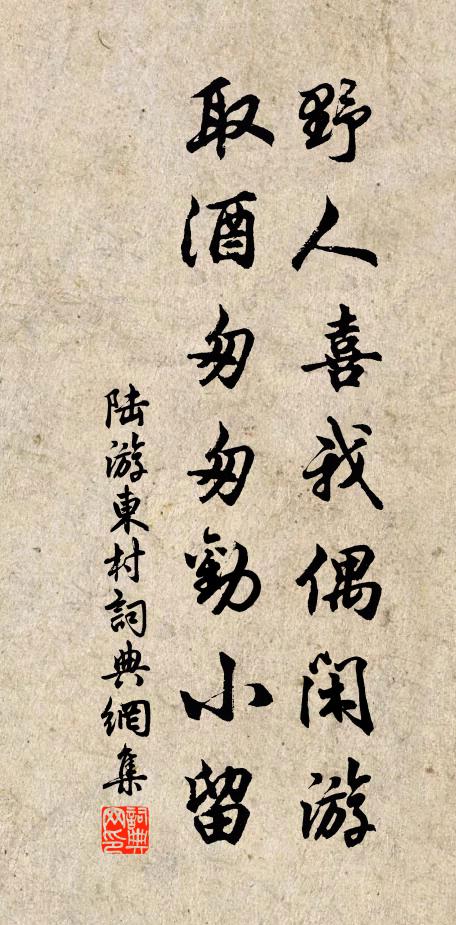 野人喜我偶闲游
取酒匆匆勸小留
陆游東村詞典網集
詞典网印